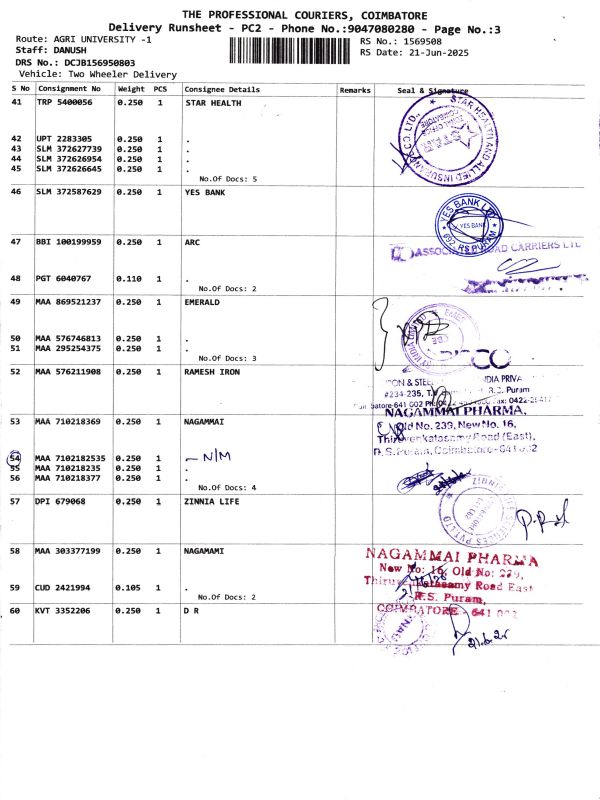 THE PROFESSIONAL COURIERS, COIMBATORE
Delivery Runsheet - PC2 - Phone No.:9047080280 - Page No.:3
Route: AGRI UNIVERSITY -1
RS No.: 1569508
Staff: DANUSH
RS Date: 21-Jun-2025
DRS No.: DCJB156950803
Vehicle: Two Wheeler Delivery
S No Consignment No Weight PCS Consignee Details Remarks Seal & Signature
41 TRP 5400056 0.250 1 STAR HEALTH
STAR HEALTH AND ALLIED INSURANCE CO. LTD.
42 UPT 2283305 0.250 1 .
43 SLM 372627739 0.250 1 .
44 SLM 372626954 0.250 1 .
45 SLM 372626645 0.250 1 .
No.Of Docs: 5
46 SLM 372587629 0.250 1 YES BANK
YES BANK LTD.
YES BANK
692, RS PURAM
47 BBI 100199959 0.250 1 ARC
ROAD CARRIERS LTD
48 PGT 6040767 0.110 1 .
No.Of Docs: 2
49 MAA 869521237 0.250 1 EMERALD
CBE
50 MAA 576746813 0.250 1 .
51 MAA 295254375 0.250 1 .
No.Of Docs: 3
52 MAA 576211908 0.250 1 RAMESH IRON
#234-235, R.S. Puram
53 MAA 710218369 0.250 1 NAGAMMAI
NAGAMMAI PHARMA,
Old No. 239, New No. 16,
Thiruvenkatasamy Road (East),
R.S. Puram, Coimbatore-641 002
54 MAA 7102182535 0.250 1 – N/M
55 MAA 710218235 0.250 1 .
56 MAA 710218377 0.250 1 .
No.Of Docs: 4
57 DPI 679068 0.250 1 ZINNIA LIFE
ZINNIA LIFE SCIENCES PVT LTD
58 MAA 303377199 0.250 1 NAGAMAMI
NAGAMMAI PHARMA
New No: 16, Old No: 239,
Road East
R.S. Puram,
COIMBATORE - 641 002
59 CUD 2421994 0.105 1 .
No.Of Docs: 2
60 KVT 3352206 0.250 1 D R
21.6.25